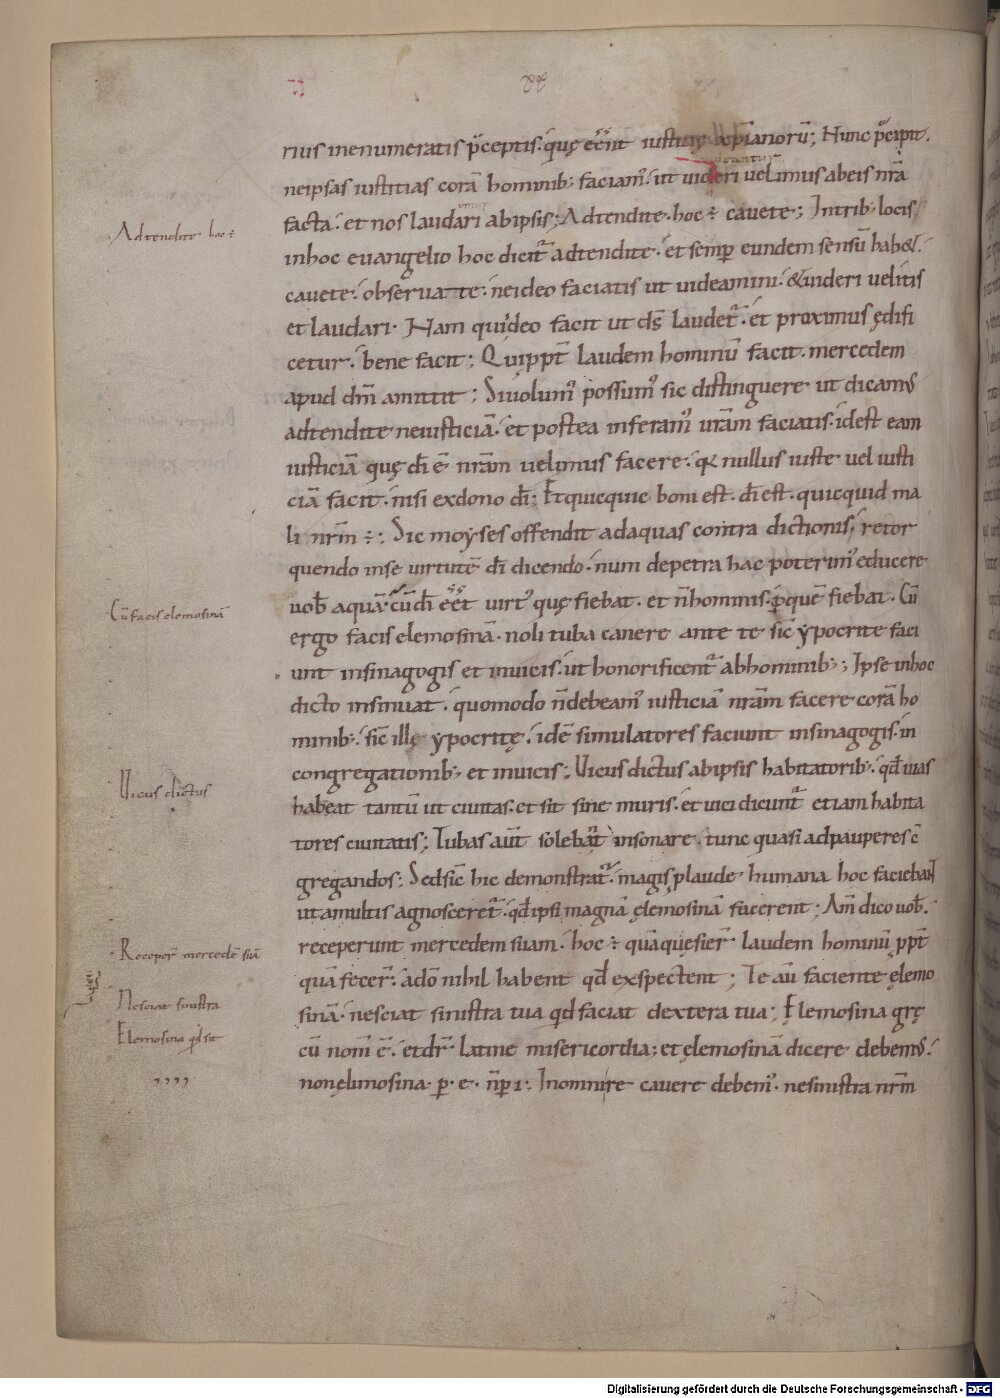 rius inenumeratis p̄ceptis. quę eēnt iusticię xp̄ianorū; Nunc p̄cipit.
neipsas iustitias corā hominib; faciam'. ut uideri uelimus abeis nr̄a
facta. et nos laudari abipsis; Adtendite. hoc ÷ cauete; Intrib; locis
inhoc euangelio hoc dicit᷑ adtendite. et semp̄ eundem sensū hab&.
cauete. obseruate. neideo faciatis ut uideamini. &uideri uelitis
et laudari. Nam quideo facit ut ds̄ laudet᷑. et proximus ędifi
cetur. bene facit; Quippt̄ laudem hominū facit. mercedem
apud dm̄ amittit; Siuolum' possum' sic distinguere ut dicam'
adtendite neiusticiā. et postea inferam' ur̄am faciatis. idest eam
iusticiā quę dī ē nr̄am uelimus facere. quia nullus iuste uel iusti
ciā facit. nisi exdono dī; Etquicquic boni est. dī est. quicquid ma
li nr̄m ÷; Sic moyses offendit adaquas contra dictionis. retor
quendo inse uirtutē dī dicendo. num depetra hac poterim' educere
uob̄ aquā. cū dī eēt uirt' quę fiebat. et n̄hominis. p̄quē fiebat. Cū
ergo facis elemosinā. noli tuba canere ante te sic̄ ypocrite faci
unt insinagogis et inuicis. ut honorificent᷑ abhominib;; Ipse inhoc
dicto insinuat. quomodo n̄debeam' iusticiā nr̄am facere corā ho
minib;. sic̄ illę ypocritę. idē simulatores faciunt insinagogis. in
congregationib; et inuicis; Uicus dictus abipsis habitatorib;. qd̄ uias
habeat tantū ut ciuitas. et sit sine muris. et uici dicunt᷑ etiam habita
tores ciuitatis; Tubas aūt solebant insonare. tunc quasi adpauperes c̄
gregandos; Sedsic̄ hic demonstrat᷑. magisplaude humana hoc faciebant
utamultis agnosceret᷑. qd̄ipsi magnā ęlemosinā facerent; Am̄ dico uob̄.
receperunt mercedem suam. hoc ÷ quāquęsier̄ laudem hominū ppt̄
quā fecer̄. adō nihil habent qd̄ exspectent; Te aū faciente ęlemo
sinā. nesciat sinistra tua qd̄ faciat dextera tua; Elemosina grę
cū nom̄ ē. etdr̄ latine misericordia; et ęlemosinā dicere debem'.
nonęlimosina. p. e. n̄p i; Inomnire cauere debem'. nesinistra nr̄m
Adtendite hoc ÷
Cū facis elemosinā
Uicus dictus
Receper̄ mercedē suā
Nesciat sinistra
Elemosina qd̄ sit
Digitalisierung gefördert durch die Deutsche Forschungsgemeinschaft - DFG